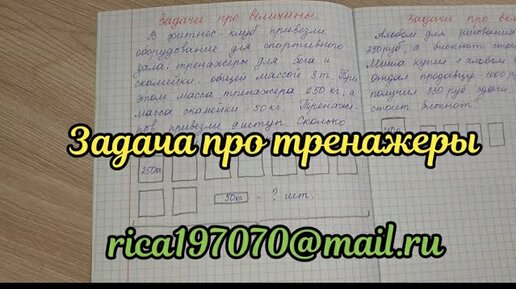 Задачи про величины
В фитнес-клуб привезли
оборудование для спортивного
зала: тренажеры для бега и
скамейки, общей массой 3 т. При
этом масса тренажера 250 кг, а
масса скамейки 50 кг. Тренаже-
ров привезли 9 штук. Сколько
250кг
50кг - ? шт.
Задачи про вел
Альбом для рисования
250 руб, а блокнот
Миша купил 1 альбом
отдал продавцу 1000 р
получил 350 руб сдачи.
стоит блокнот?
Задача про тренажеры
rica197070@mail.ru